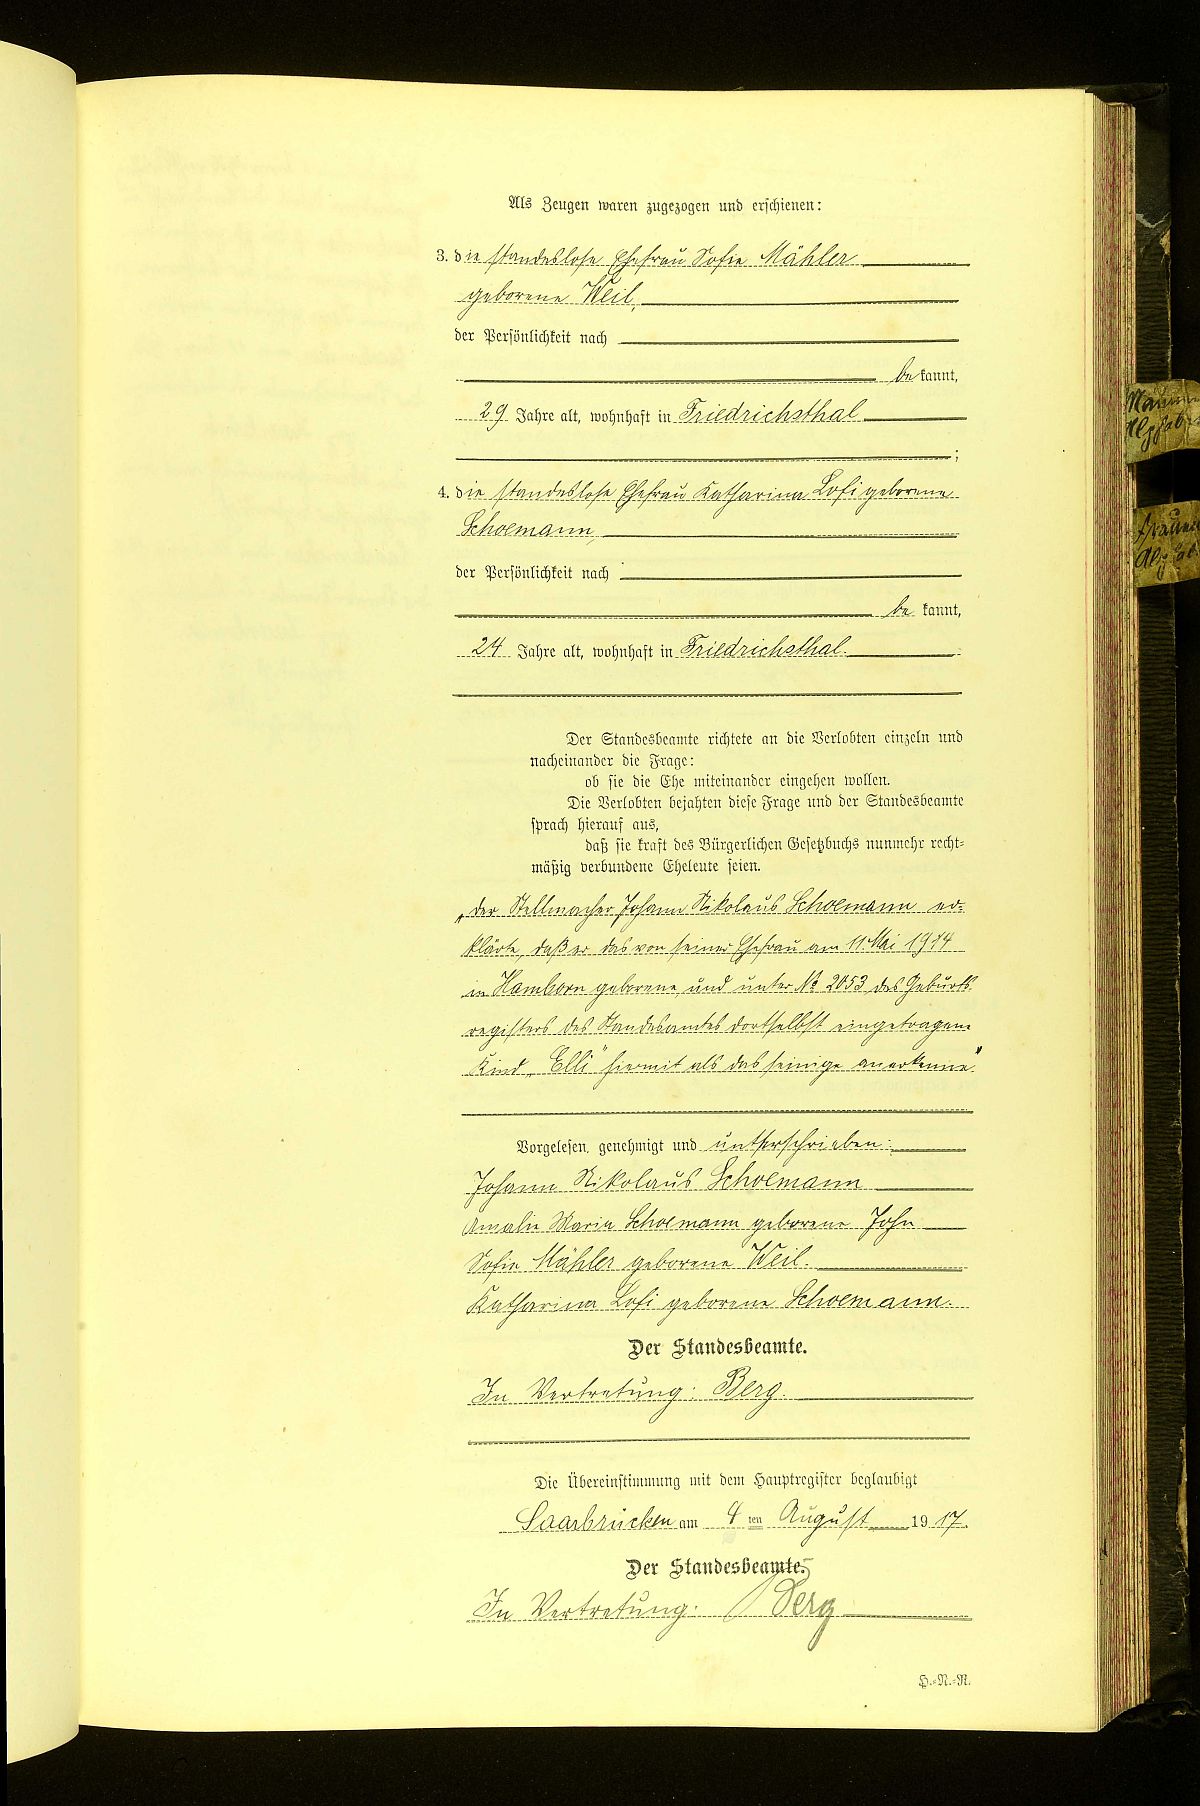 Als Zeugen waren zugezogen und erschienen:
3. die standeslose Ehefrau Sofie Mähler
geborene Weil,
der Persönlichkeit nach
be kannt,
29 Jahre alt, wohnhaft in Friedrichsthal
;
4. die standeslose Ehefrau Katharina Lofi geborene
Schoemann,
der Persönlichkeit nach
be kannt,
24 Jahre alt, wohnhaft in Friedrichsthal.
Der Standesbeamte richtete an die Verlobten einzeln und
nacheinander die Frage:
ob sie die Ehe miteinander eingehen wollen.
Die Verlobten bejahten diese Frage und der Standesbeamte
sprach hierauf aus,
daß sie kraft des Bürgerlichen Gesetzbuchs nunmehr recht-
mäßig verbundene Eheleute seien.
„Der Stellmacher Johann Nikolaus Schoemann er-
klärte, daß er das von seiner Ehefrau am 11. Mai 1914
in Hamborn geborene und unter No 2053 des Geburts-
registers des Standesamtes dortselbst eingetragene
Kind „Elli" hiermit als das seinige anerkenne."
Vorgelesen, genehmigt und unterschrieben:
Johann Nikolaus Schoemann
Amalie Maria Schoemann geborene John
Sofie Mähler geborene Weil.
Katharina Lofi geborene Schoemann.
Der Standesbeamte.
In Vertretung: Berg.
Die Übereinstimmung mit dem Hauptregister beglaubigt
Saarbrücken am 4 ten August 1917.
Der Standesbeamte.
In Vertretung: Berg
H.-N.-R.